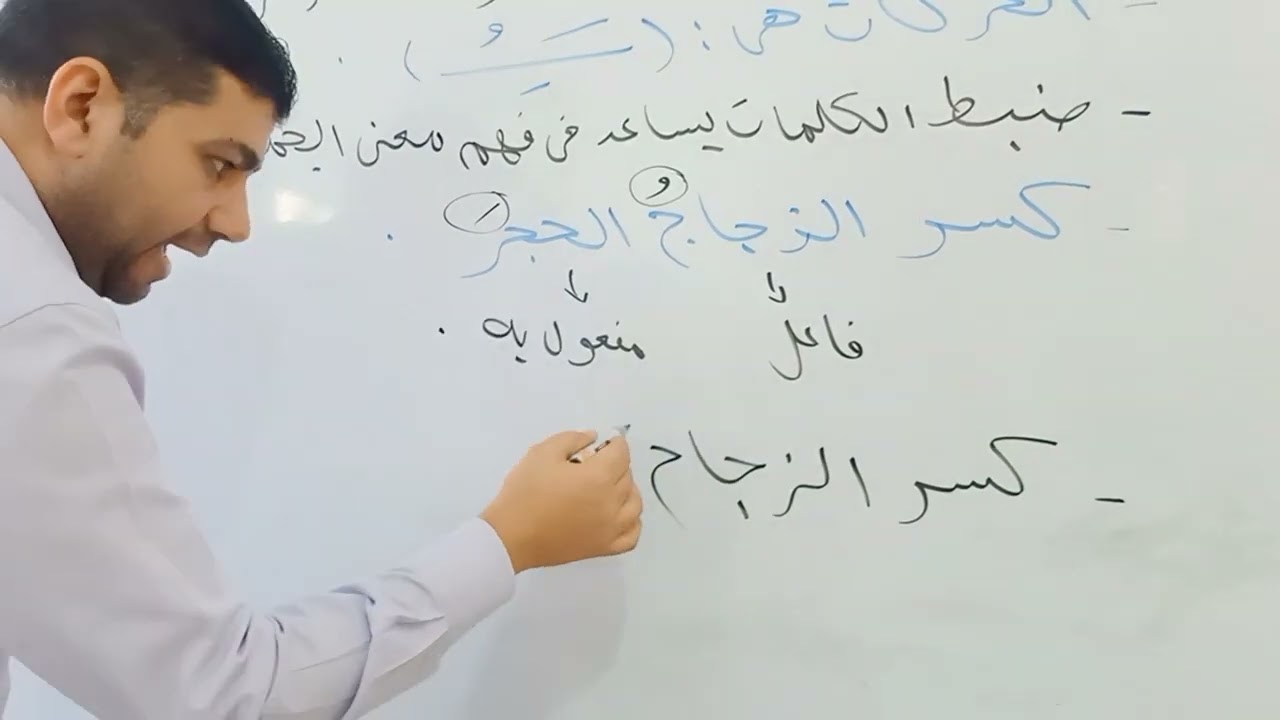 - الحركات هي : ( َ ُ ِ ) .
- ضبط الكلمات يساعد في فهم معنى
- كسر الزجاجُ الحجرَ .
فاعل مفعول به .
- كسر الزجاج